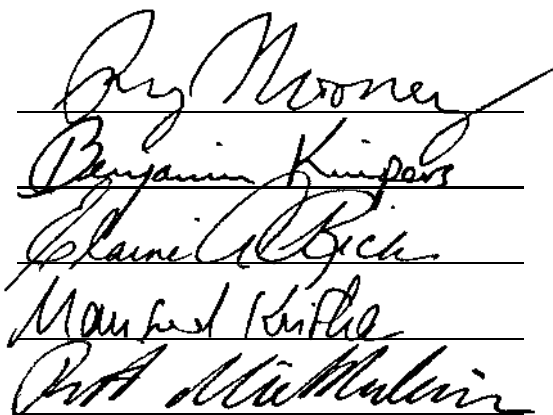 Ray Mooney
Benjamin Kuipers
Elaine A Rich
Manfred Krithe
Risto Miikkulainen